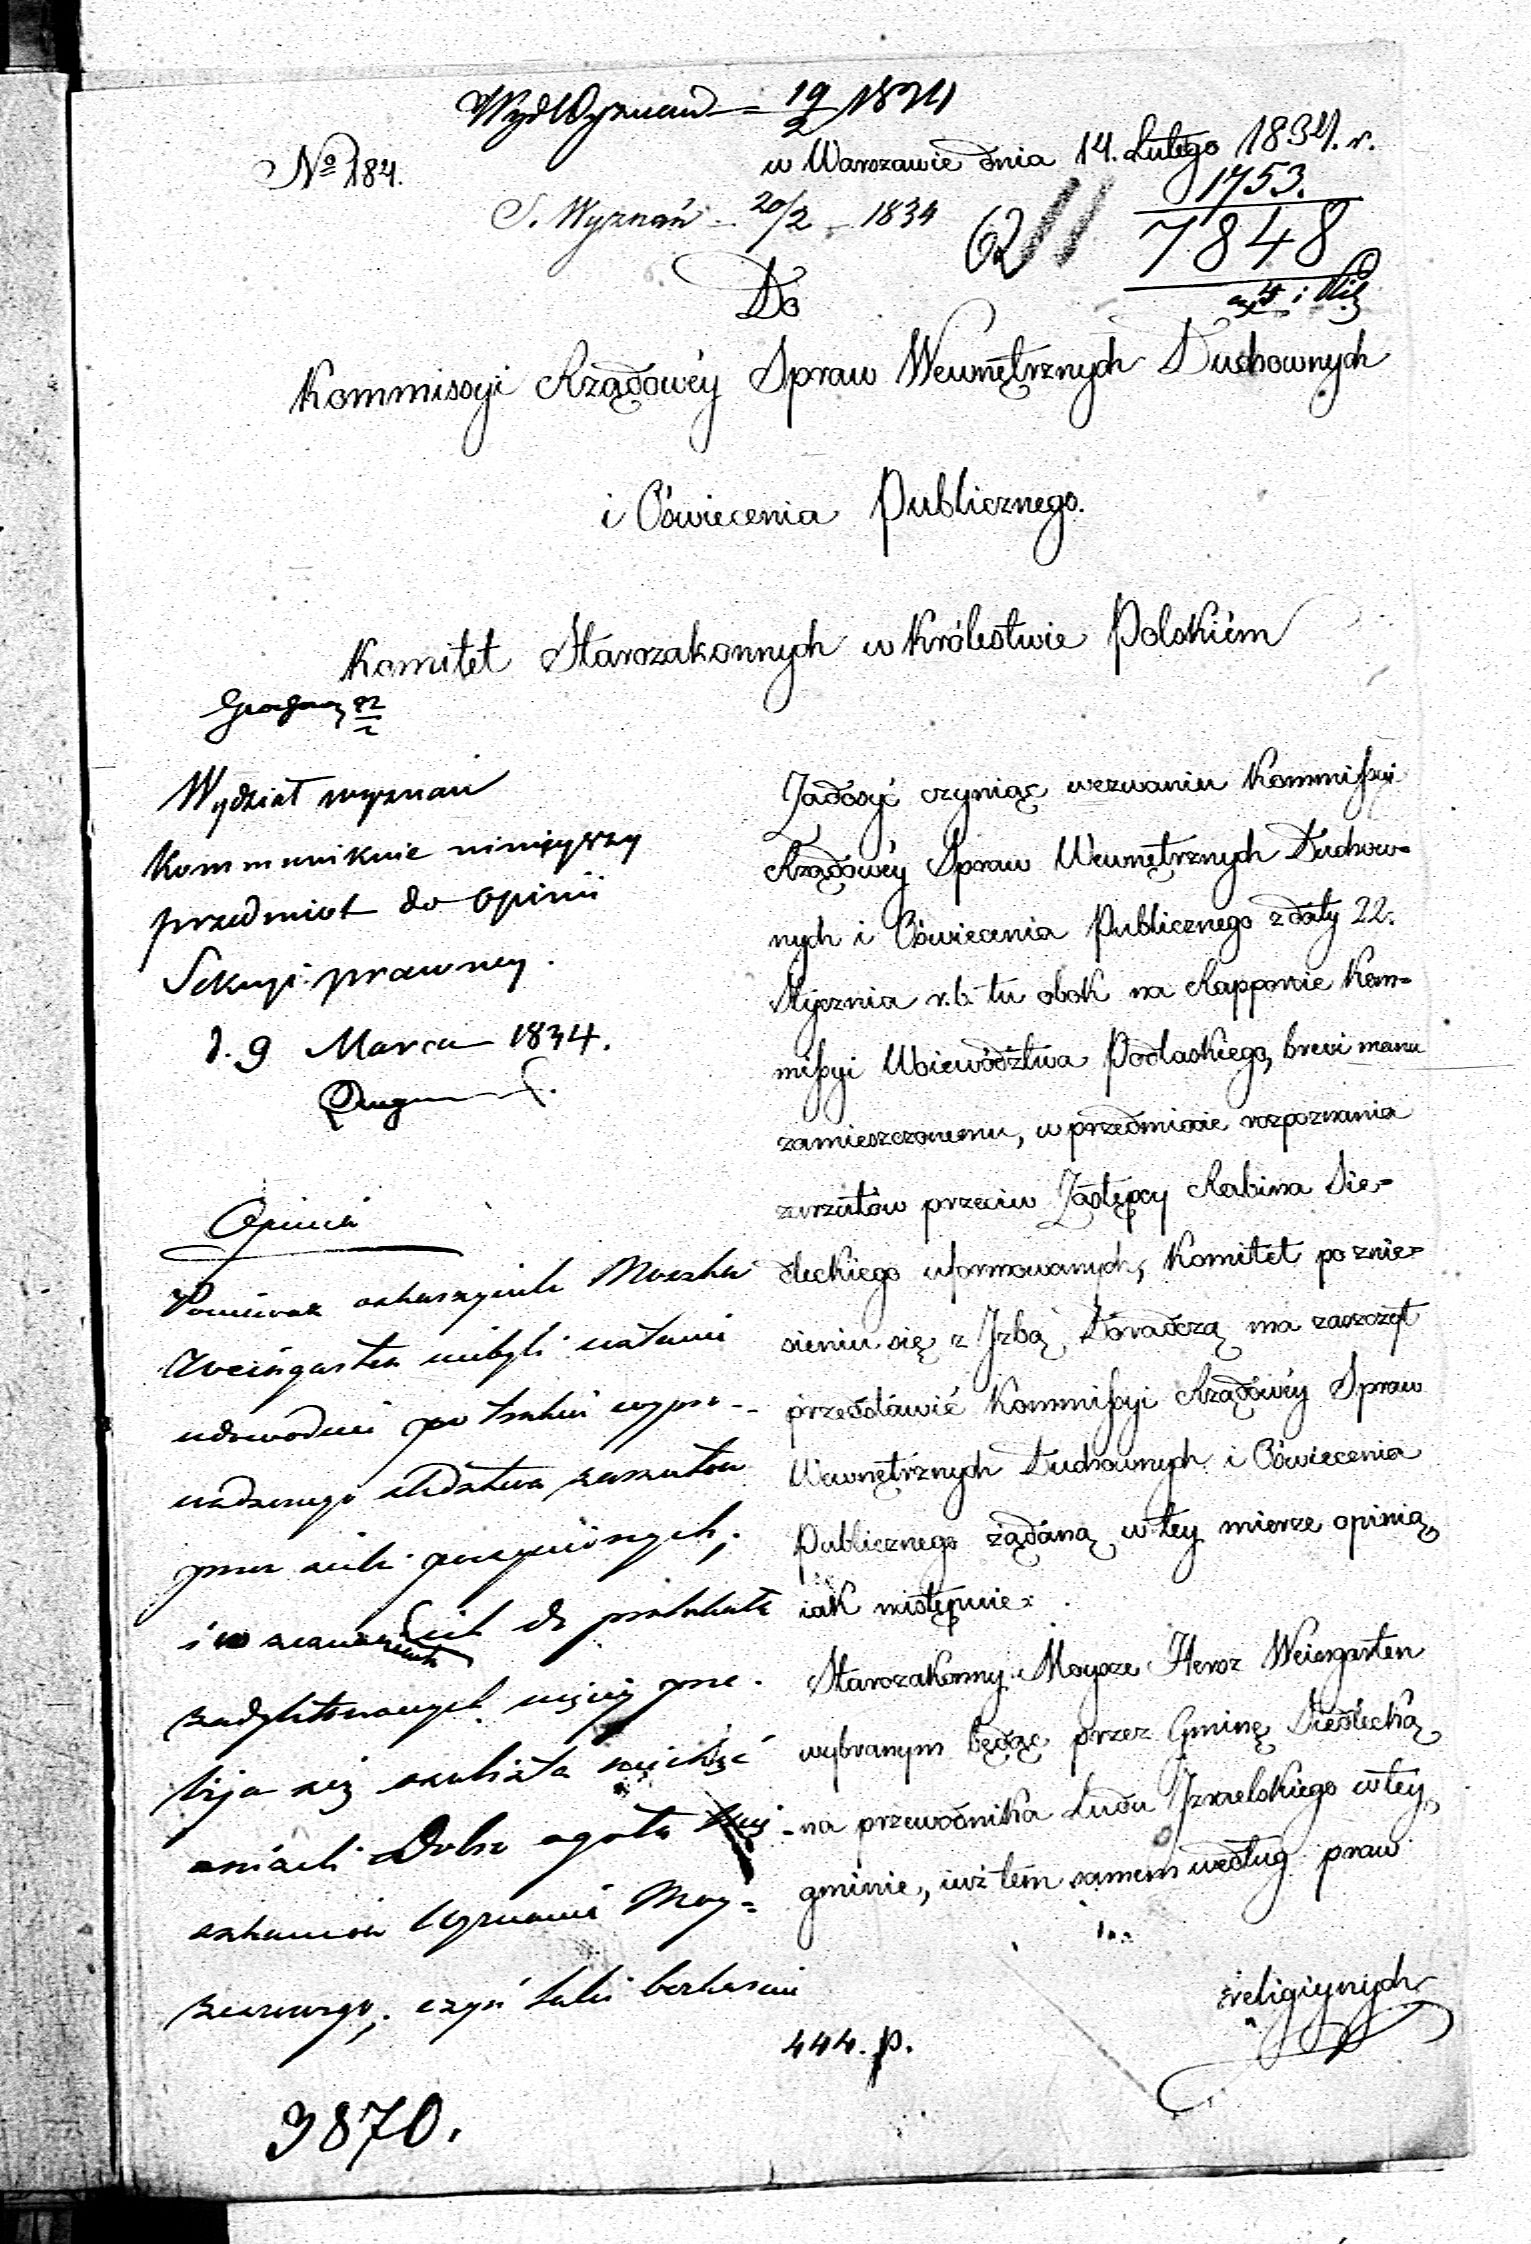 WydWyznań 19/2 1834
w Warszawie dnia 14. Lutego 1834. r.
No 184.
1753.
S. Wyznań - 20/2 - 1834
62
7848
Do
Kommissyi Rządowéy Spraw Wewnętrznych Duchownych
i Oświecenia Publicznego.
Komitet Starozakonnych w Królestwie Polskiém
Wydział wyznań
kommunikuie ninieyszy
przedmiot do Opinii
Sekcyi prawney.
d. 9 Marca 1834.
Opinia
Ponieważ oskarżyciele Moszka
Weingarten niebyli wstanie
udowodnić po trzakić wypro-
wadzonego śledztwa zarzutów
przez siebie poczynionych,
i w zeznaniach do protokułu
zadyktowanych więcéy prze-
bija się osobista
aniżeli Dobro ogółu
Wyznania Moy-
żeszowego; czyń
3870.
Zadosyć czyniąc wezwaniu Kommissyi
Rządowéy Spraw Wewnętrznych Duchow-
nych i Oświecenia Publicznego z daty 22.
Stycznia r.b. tu obok na Rapporcie Kom-
missyi Woiewództwa Podlaskiego, brevi manu
zamieszczonemu, w przedmiocie rozpoznania
zarzutów przeciw Zastępcy Rabina Sie-
dleckiego uformowanych, Komitet po znie-
sieniu się z Izbą Doradczą ma zaszczyt
przedstawić Kommissyi Rządowéy Spraw
Wewnętrznych Duchownych i Oświecenia
Publicznego żądaną w tey mierze opinią
iak następuie:
Starozakonny Moysze Hersz Weingarten
wybranym będąc przez Gminę Siedlecką
na przewodnika Ludu Izraelskiego w tey
gminie, iuż tém samém według praw
religiynych
444. p.